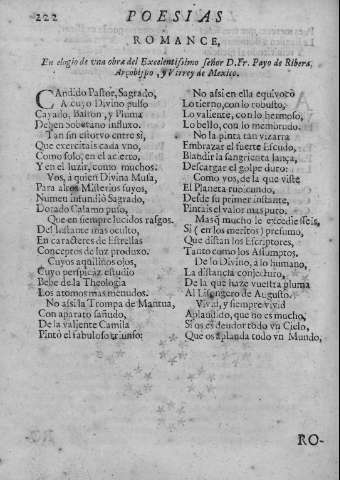 222 POESIAS
ROMANCE,
En elogio de vna obra del Excelentissimo señor D. Fr. Payo de Ribera,
Arçobispo, y Virrey de Mexico.
CAndido Pastor, Sagrado,
A cuyo Divino pulso
Cayado, Baston, y Pluma
Deben soberano influxo.
Tan sin estorvo entre sì,
Que exercitais cada vno,
Como solo, en el acierto,
Y en el luzir, como muchos.
Vos, à quien Divina Musa,
Para altos Misterios suyos,
Numen infundiò Sagrado,
Dorado Calamo puso,
Que en siempre lucidos rasgos.
Del instante mas oculto,
En caracteres de Estrellas
Conceptos de luz produxo.
Cuyos aquilinos ojos,
Cuyo perspicaz estudio
Bebe de la Theologia
Los atomos mas menudos.
No assi la Trompa de Mantua,
Con aparato sañudo,
De la valiente Camila
Pintò el fabuloso triunfo:
No assi en ella equivocò
Lo tierno, con lo robusto,
Lo valiente, con lo hermoso,
Lo bello, con lo membrudo.
No la pinta tan vizarra
Embrazar el fuerte Escudo,
Blandir la sangrienta lança,
Descargar el golpe duro:
Como vos, de la que viste
El Planeta rubicundo,
Desde su primer instante,
Pintais el valor mas puro,
Mas què mucho le excediesseis,
Si (en los meritos) presumo,
Que distan los Escriptores,
Tanto como los Assumptos.
De lo Divino, à lo humano,
La distancia conjeturo,
De la que haze vuestra pluma
Al Lisongero de Augusto.
Vivid, y siempre vivid
Aplaudido, que no es mucho,
Si os es deudor todo vn Cielo,
Que os aplauda todo vn Mundo,
RO-